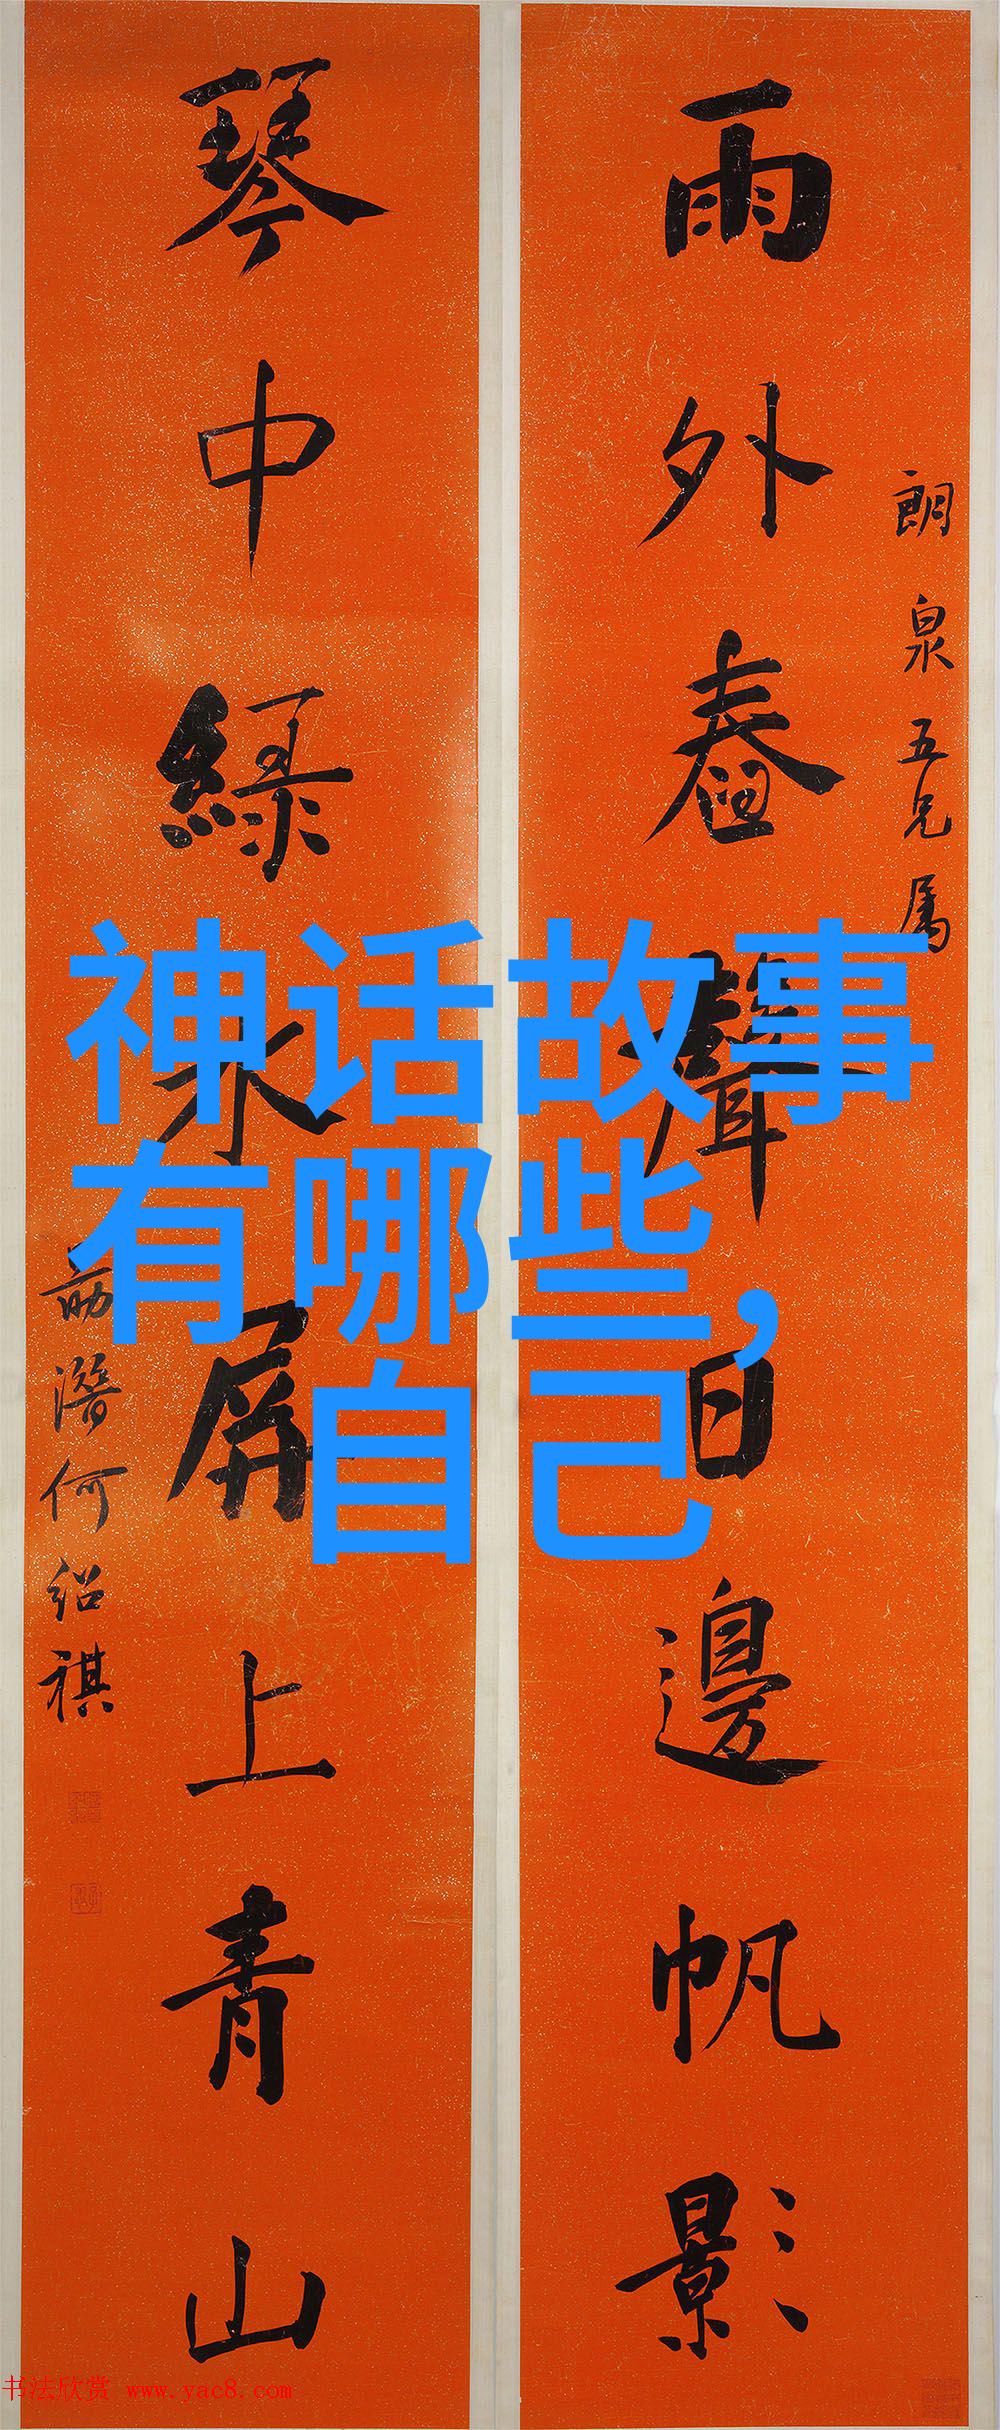 朗泉五兄属
雨外舂聲日邊帆影
琴中綠水屏上青山
潛何紹祺
神话故事
有哪些,
自己
书法欣赏 www.yac8.com